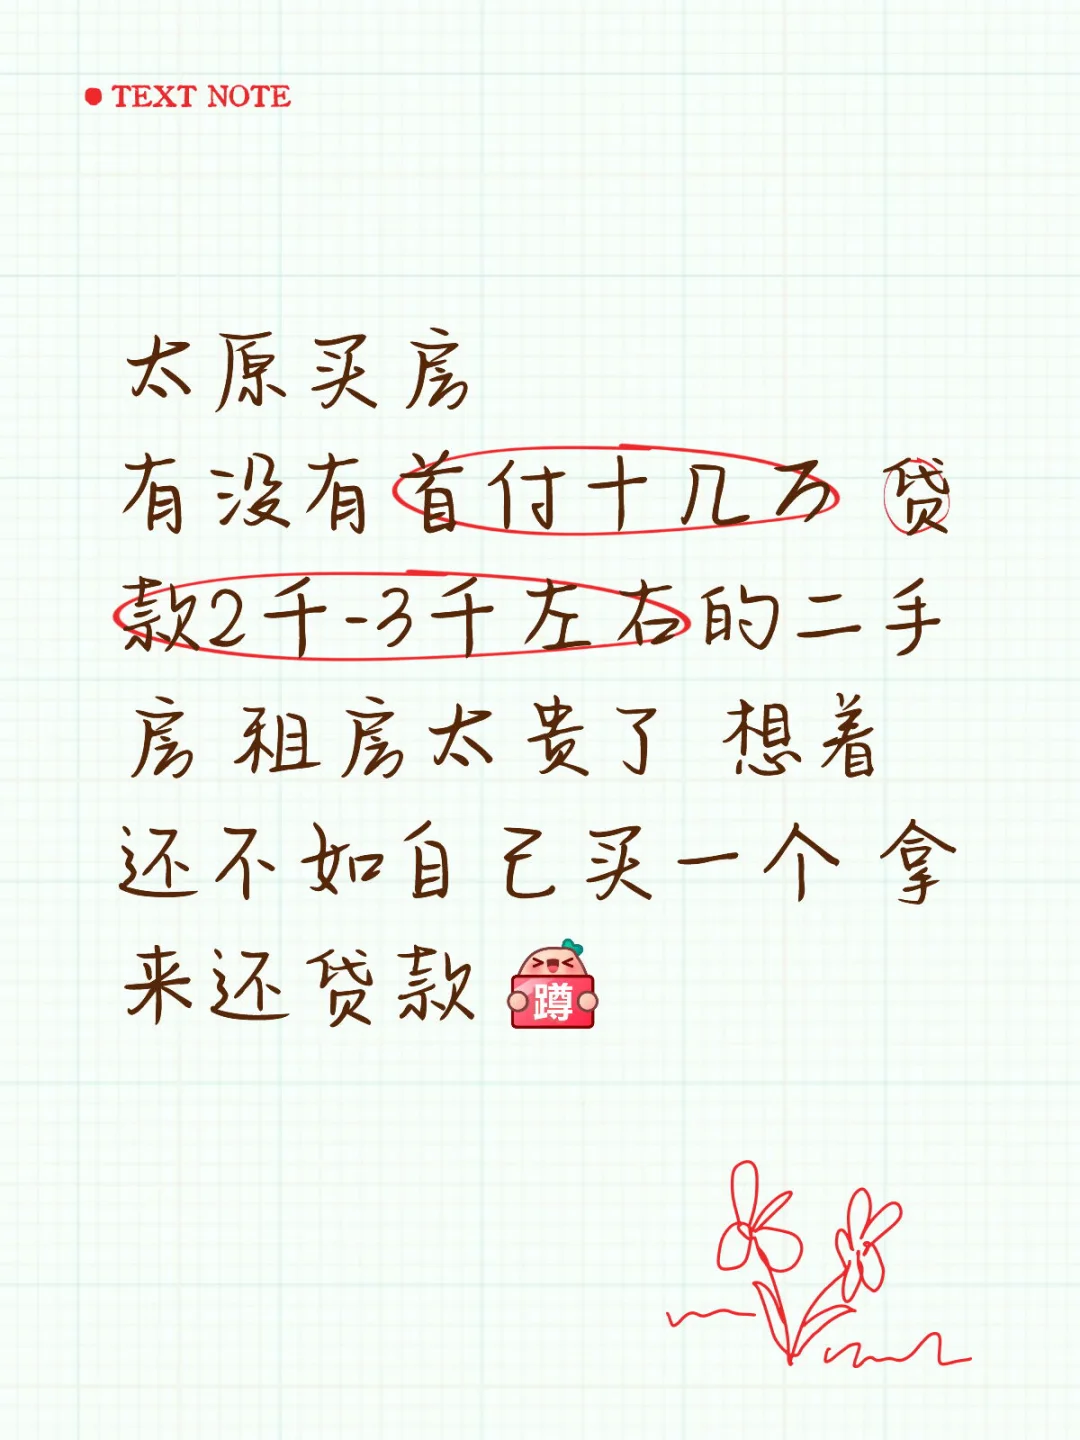 TEXT NOTE
太原买房
有没有首付十几万 贷
款2千-3千左右的二手
房 租房太贵了 想着
还不如自己买一个 拿
来还贷款
蹲